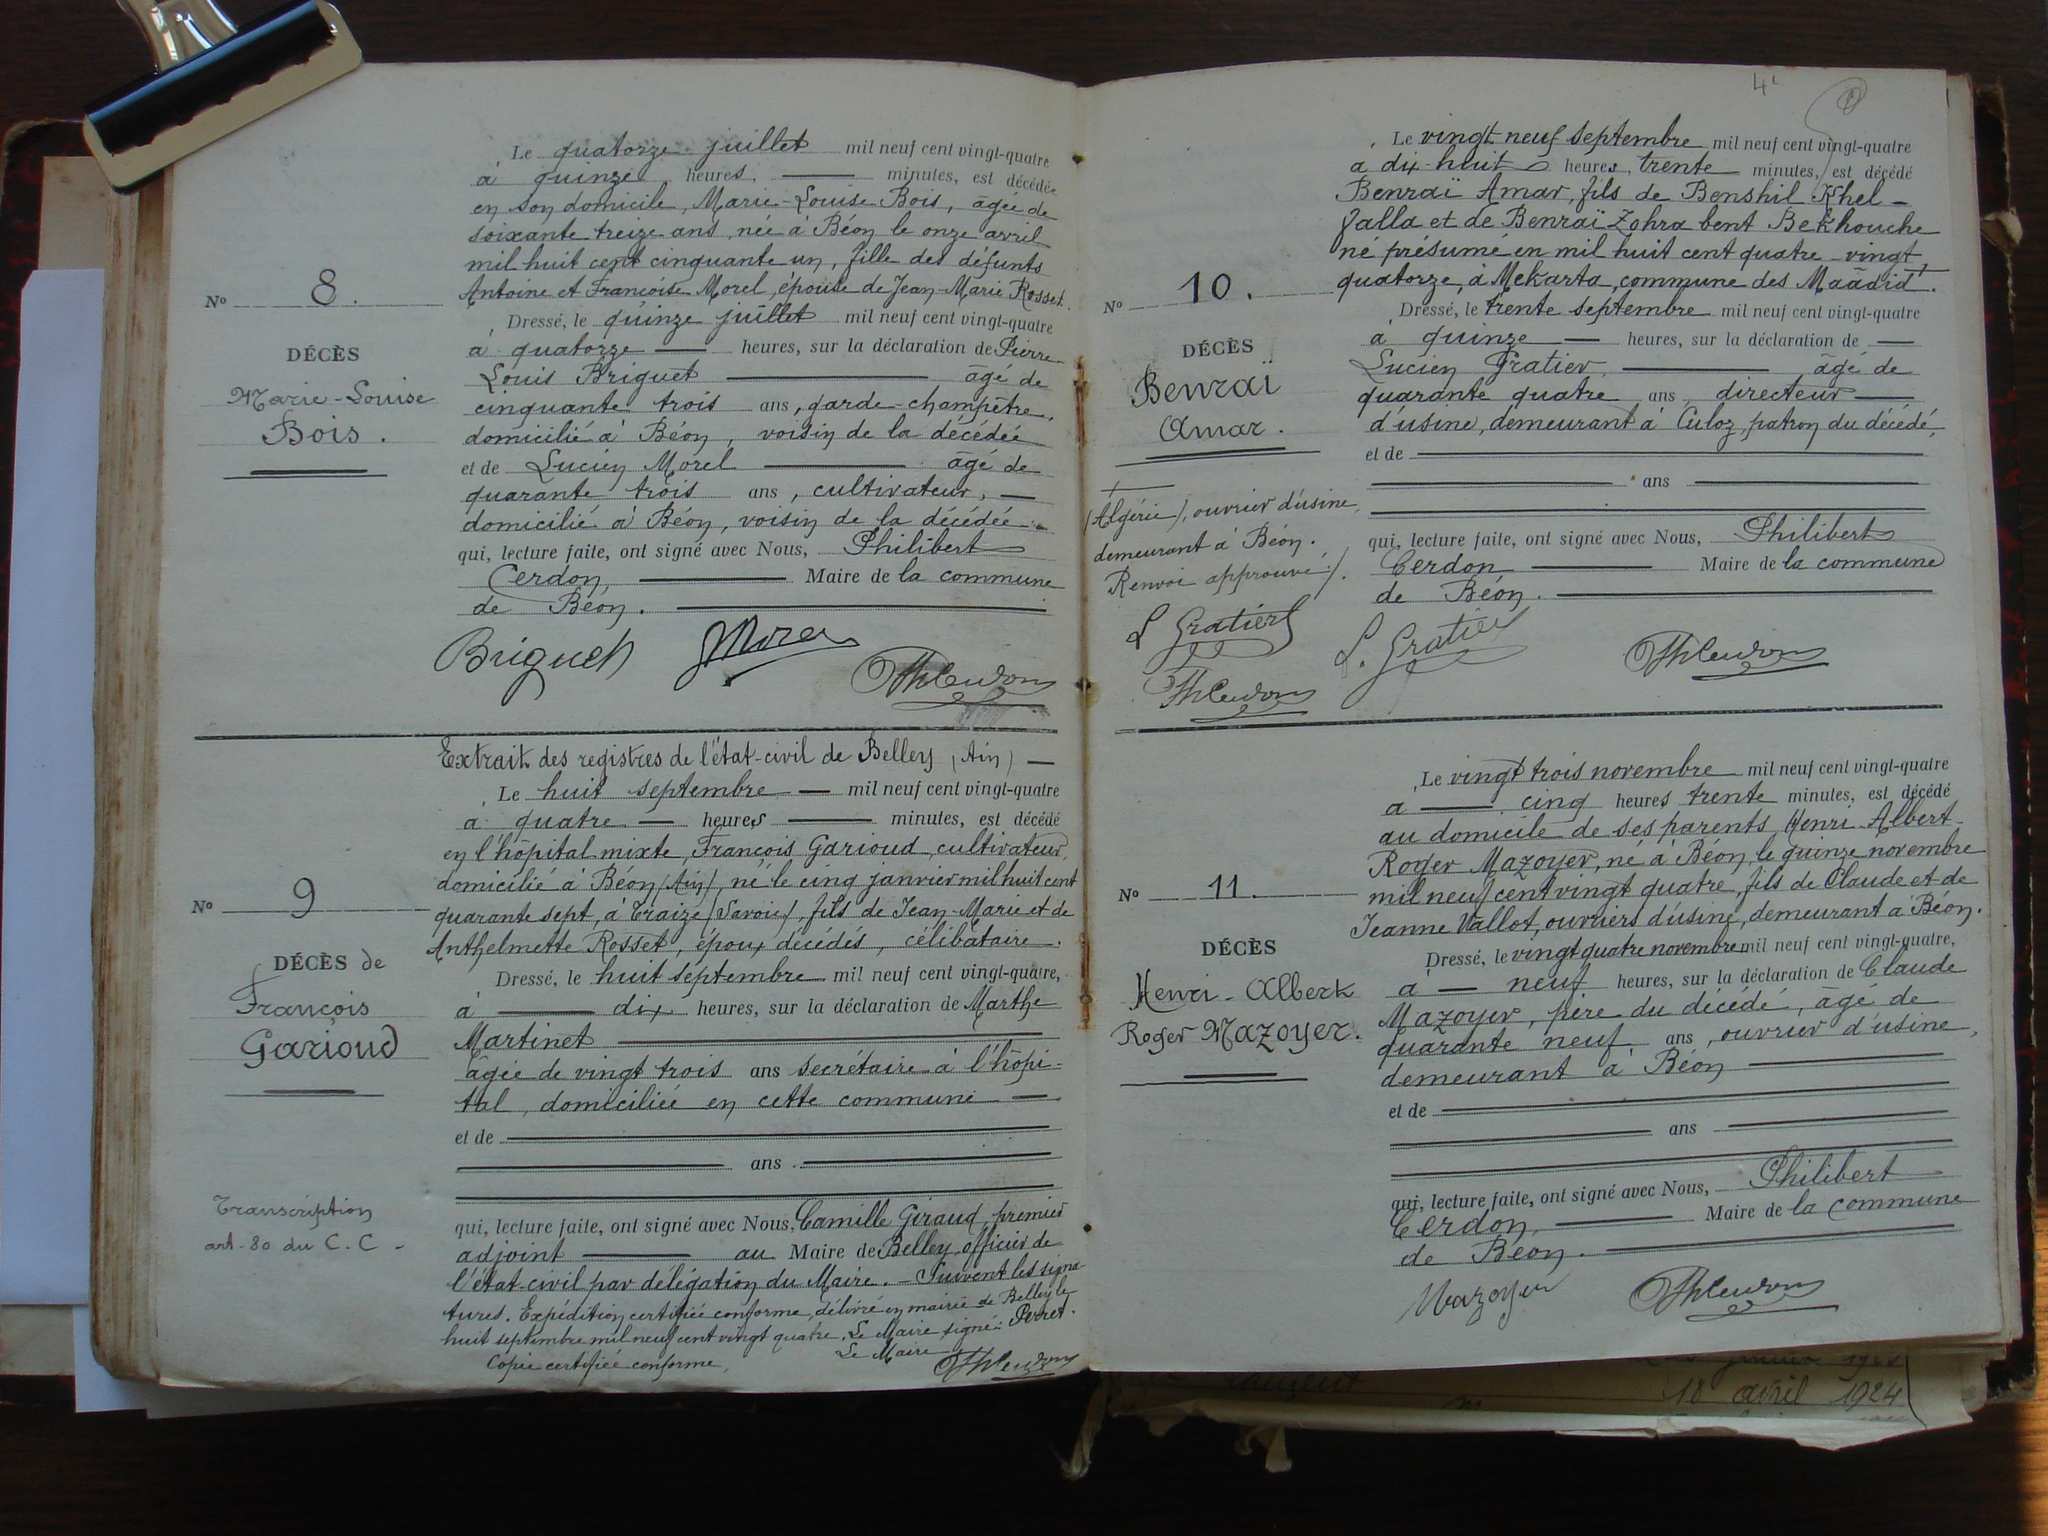 Le quatorze juillet mil neuf cent vingt-quatre
à quinze heures, minutes, est décédée
en son domicile, Marie-Louise Bois, âgée de
soixante treize ans, née à Béon le onze avril
mil huit cent cinquante un, fille des défunts
Antoine et Françoise Morel, épouse de Jean-Marie Rosset.
N° 8.
DÉCÈS
Marie-Louise
Bois.
Dressé, le quinze juillet mil neuf cent vingt-quatre
à quatorze heures, sur la déclaration de Pierre
Louis Briguet âgé de
cinquante trois ans, garde-champêtre,
domicilié à Béon, voisin de la décédée
et de Lucien Morel âgé de
quarante trois ans, cultivateur,
domicilié à Béon, voisin de la décédée
qui, lecture faite, ont signé avec Nous, Philibert
Cerdon, Maire de la commune
de Béon.
Briguet Morel PhCerdon
Extrait des registres de l'état-civil de Belley (Ain)
Le huit septembre mil neuf cent vingt-quatre
à quatre heures minutes, est décédé
en l'hôpital mixte, François Garioud, cultivateur,
domicilié à Béon (Ain), né le cinq janvier mil huit cent
quarante sept, à Traize (Savoie), fils de Jean-Marie et de
Anthelmette Rosset, époux décédés, célibataire.
N° 9
DÉCÈS de
François
Garioud
Dressé, le huit septembre mil neuf cent vingt-quatre,
à dix heures, sur la déclaration de Marthe
Martinet
âgée de vingt trois ans secrétaire à l'hôpi-
tal, domiciliée en cette commune
et de
ans
Transcription
art. 80 du C. C -
qui, lecture faite, ont signé avec Nous, Camille Giraud, premier
adjoint au Maire de Belley, officier de
l'état-civil par délégation du Maire. - Suivent les signa-
tures. Expédition certifiée conforme, délivré en mairie de Belley le
huit septembre mil neuf cent vingt quatre. Le Maire signé: Perret.
Copie certifiée conforme, Le Maire
PhCerdon
Le vingt neuf septembre mil neuf cent vingt-quatre
à dix huit heures, trente minutes, est décédé
Benraï Amar, fils de Benshil Khel-
falla et de Benraï Zohra bent Bekhouche
né présumé en mil huit cent quatre-vingt
quatorze, à Mekarta, commune des Maâdid.
N° 10.
DÉCÈS
Benraï
Amar.
(Algérie), ouvrier d'usine,
demeurant à Béon.
Renvoi approuvé:/.
L Gratier
PhCerdon
Dressé, le trente septembre mil neuf cent vingt-quatre
à quinze heures, sur la déclaration de
Lucien Gratier âgé de
quarante quatre ans, directeur
d'usine, demeurant à Culoz, patron du décédé,
et de
ans
qui, lecture faite, ont signé avec Nous, Philibert
Cerdon Maire de la commune
de Béon.
L. Gratier PhCerdon
Le vingt trois novembre mil neuf cent vingt-quatre
à cinq heures trente minutes, est décédé
au domicile de ses parents, Henri-Albert-
Roger Mazoyer, né à Béon, le quinze novembre
mil neuf cent vingt quatre, fils de Claude et de
Jeanne Vallot, ouvriers d'usine, demeurant à Béon.
N° 11.
DÉCÈS
Henri-Albert
Roger Mazoyer.
Dressé, le vingt quatre novembre mil neuf cent vingt-quatre,
à neuf heures, sur la déclaration de Claude
Mazoyer, père du décédé, âgé de
quarante neuf ans, ouvrier d'usine,
demeurant à Béon
et de
ans
qui, lecture faite, ont signé avec Nous, Philibert
Cerdon, Maire de la commune
de Béon.
Mazoyer PhCerdon
18 avril 1924